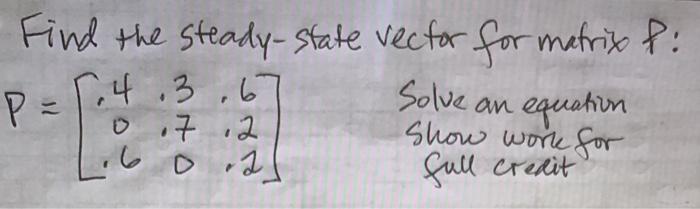 Find the steady-state vector for matrix P:
P = [.4 .3 .6
0 .7 .2
.6 0 .2]
Solve an equation
Show work for
full credit